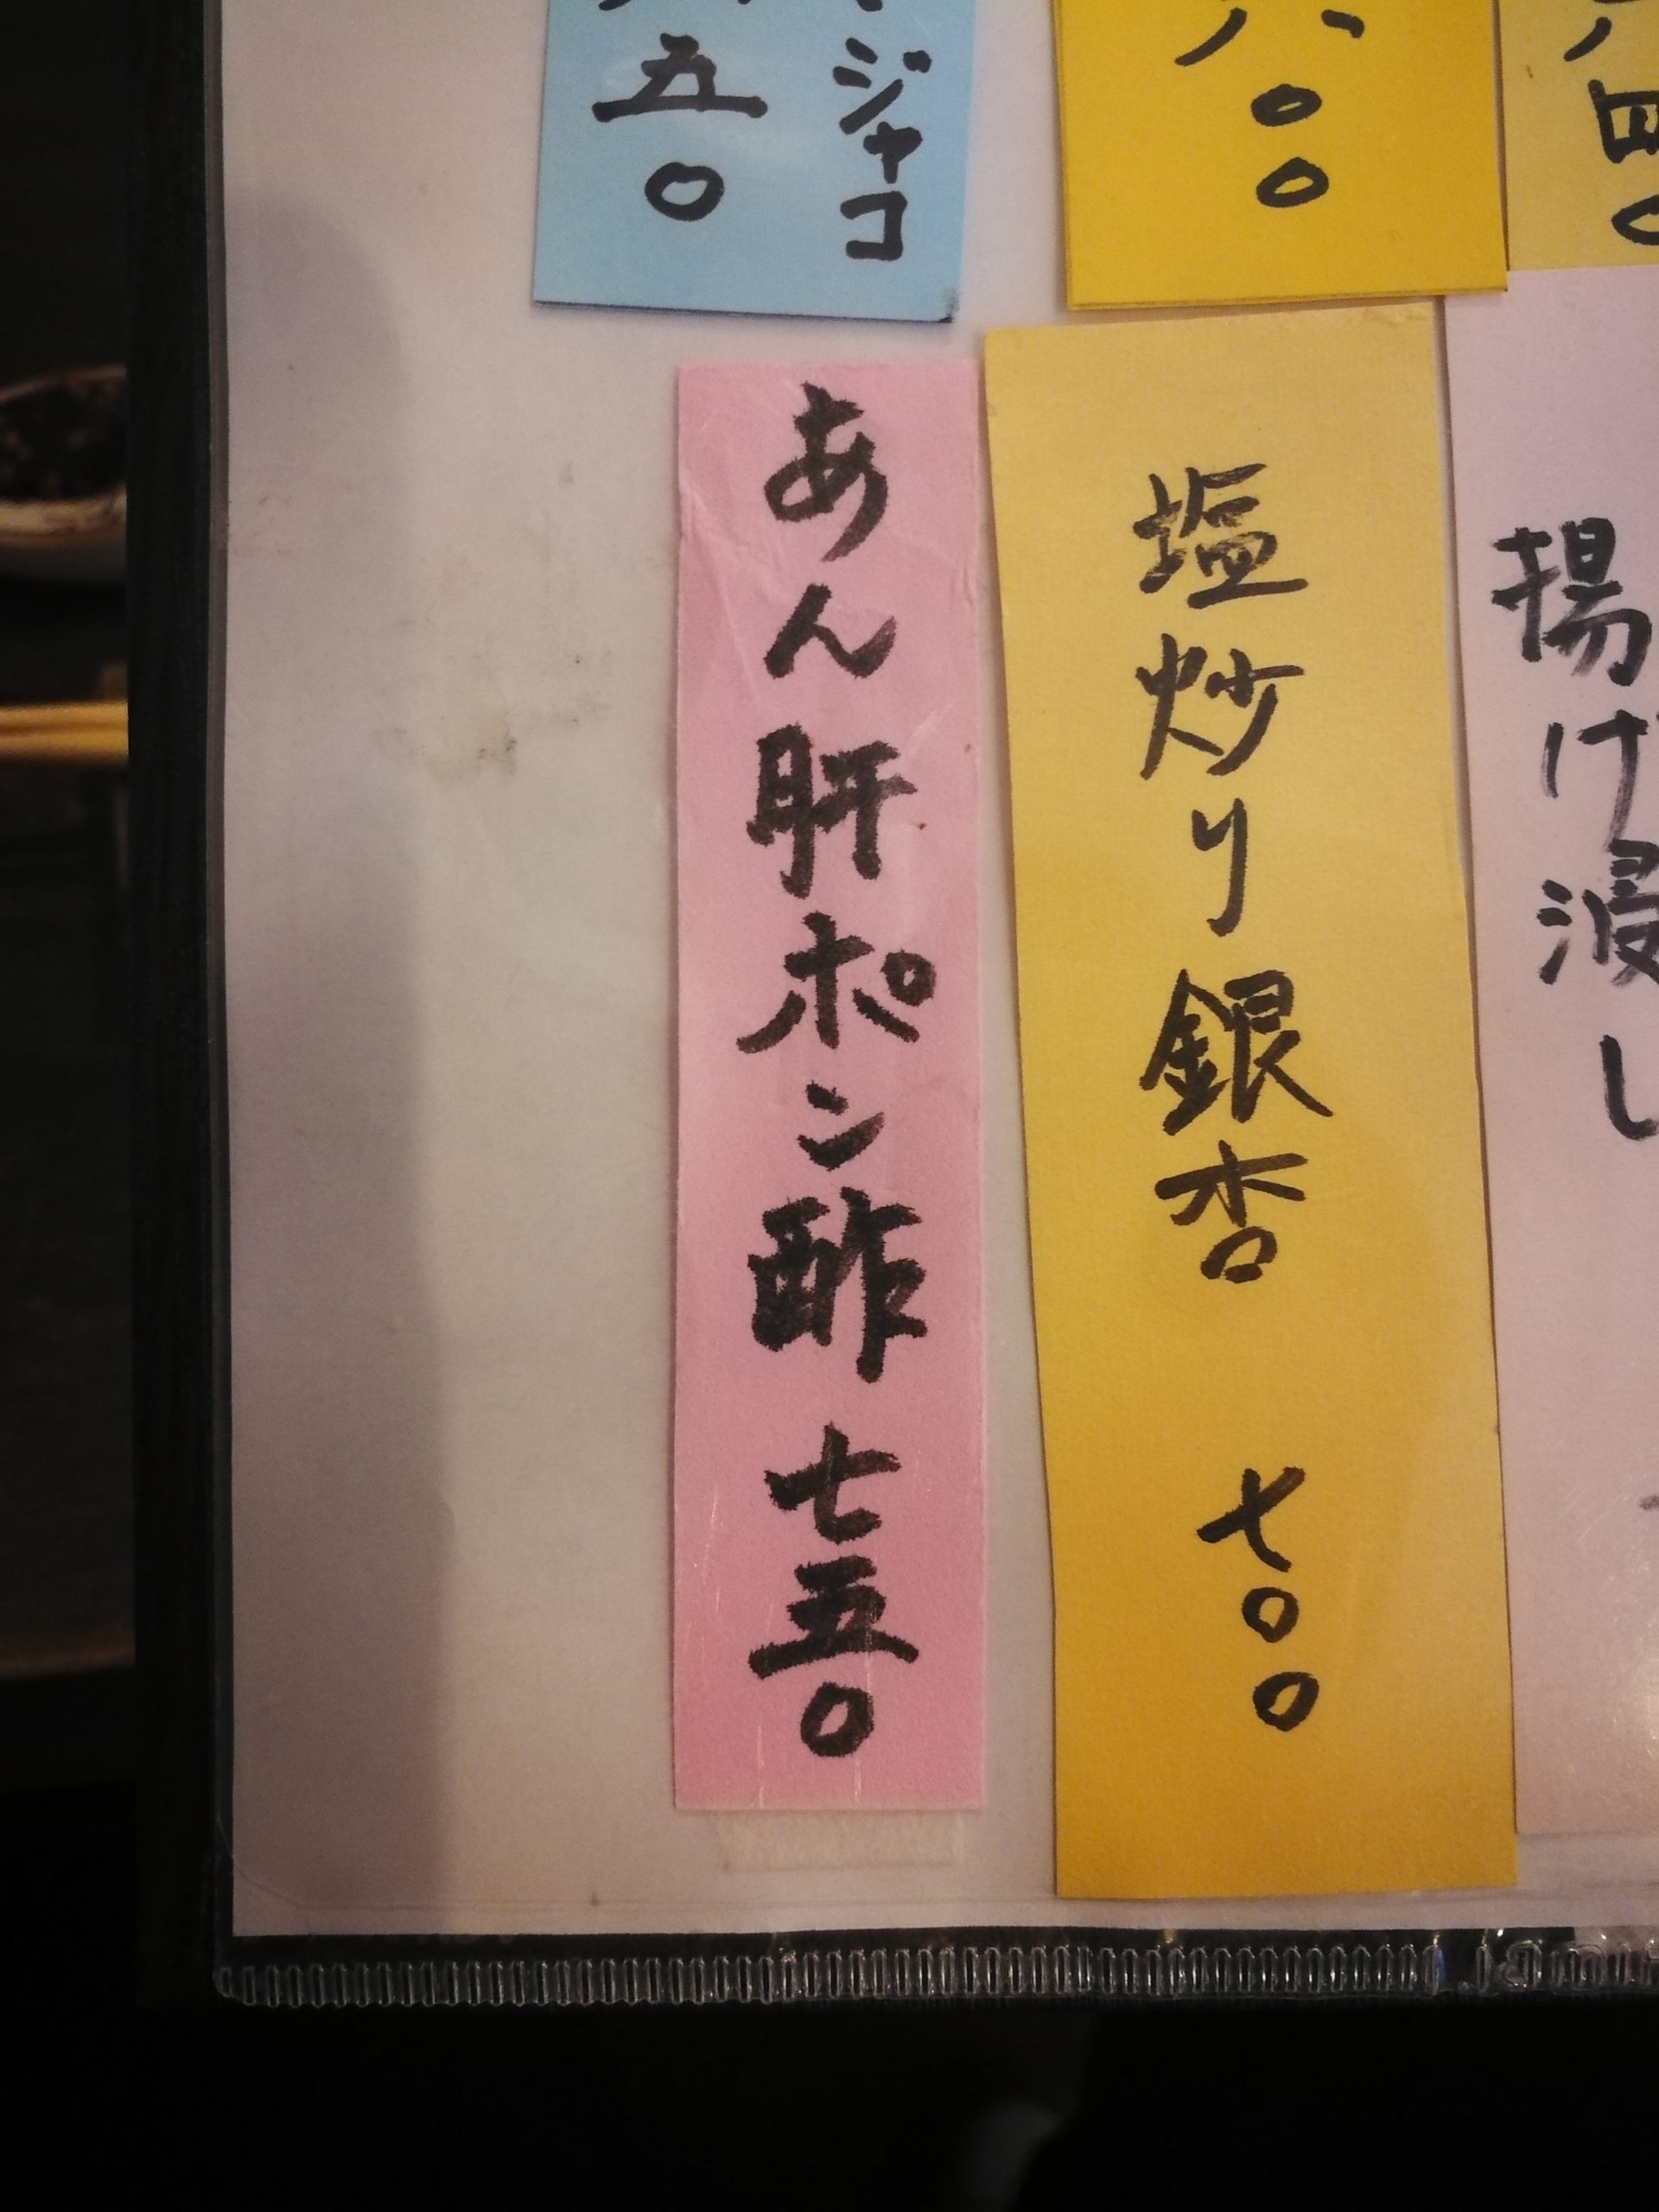 四〇
揚げ浸し
八〇〇
塩炒り銀杏 七〇〇
ジャコ
五〇
あん肝ポン酢 七五〇